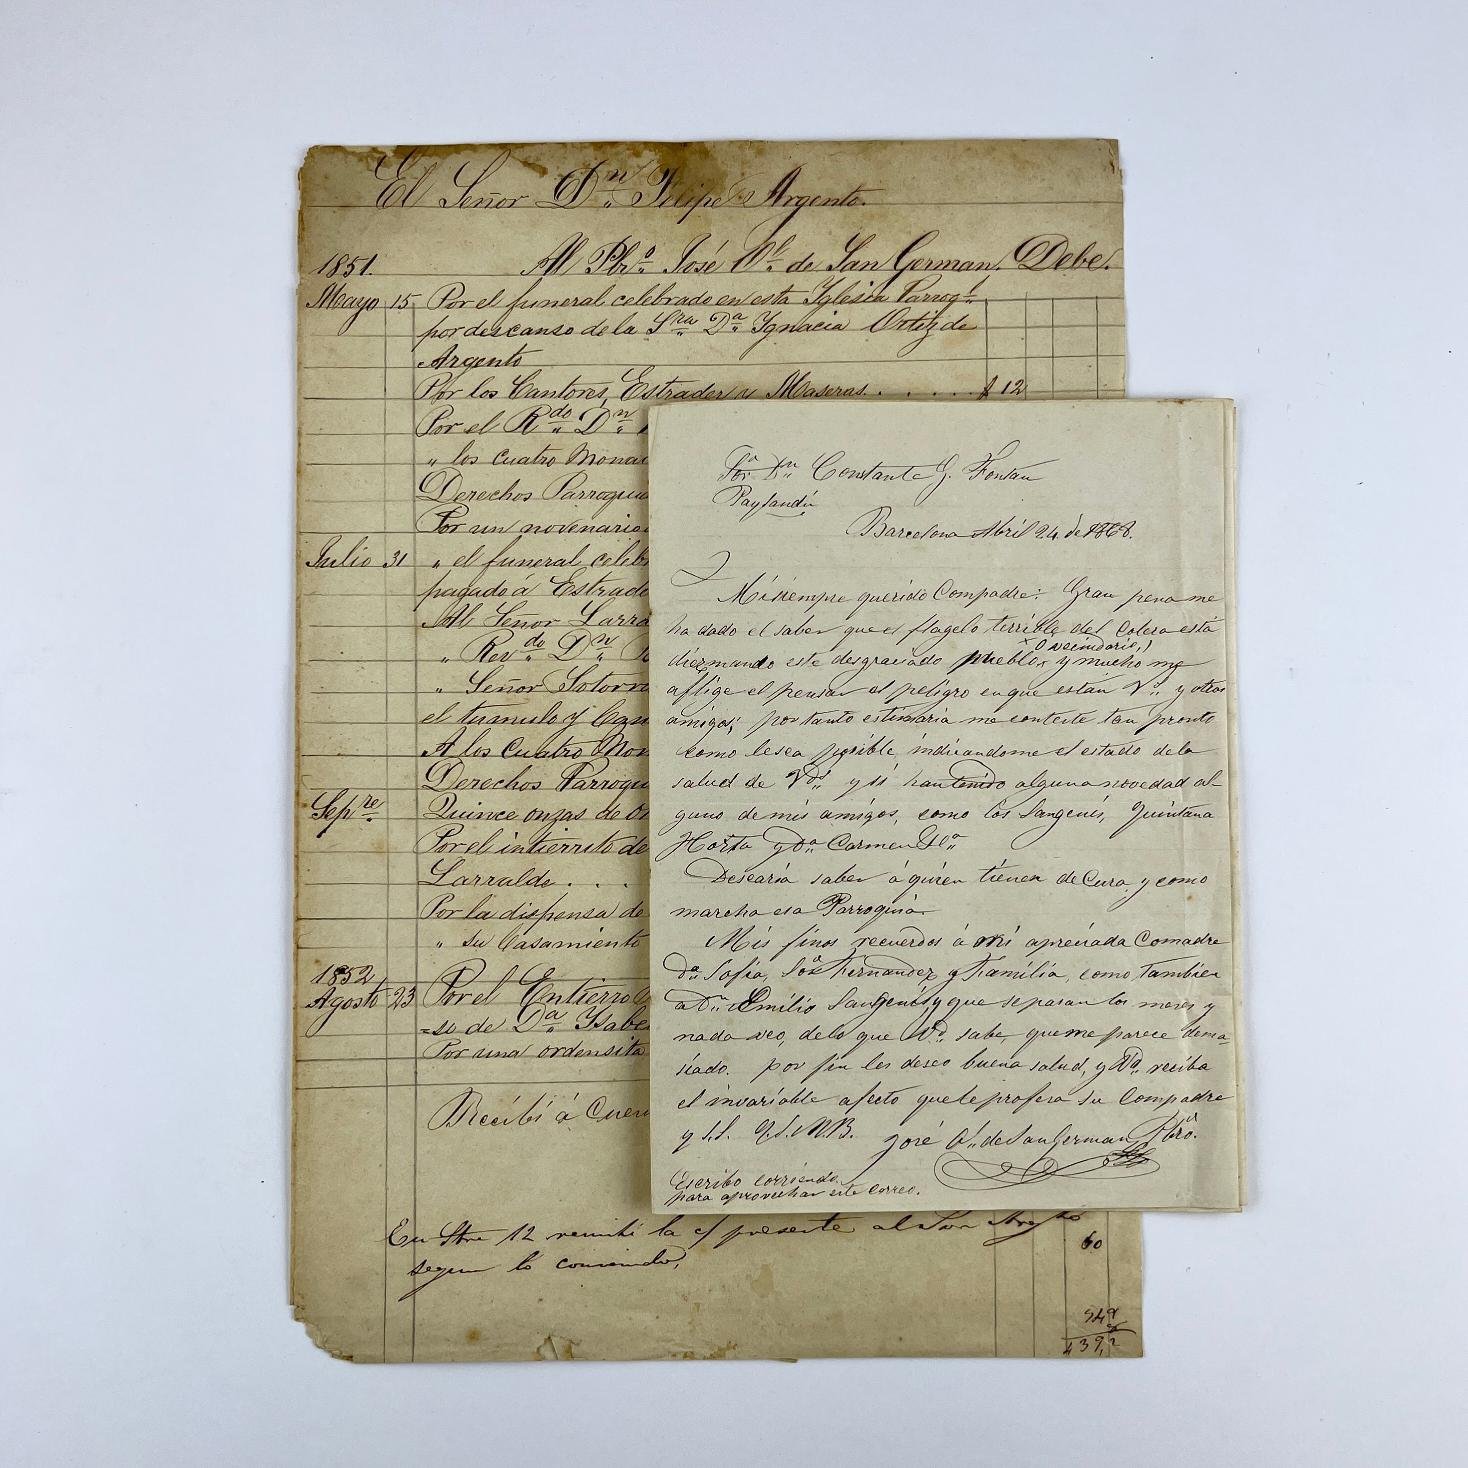 El Señor Dn. Felipe Argento.
1851. Al Pbro. José Vl. de San German, Debe.
Mayo 15 Por el funeral celebrado en esta Yglesia Parroql.
por descanso de la Sra. Da. Ygnacia Ortiz de
Argento
Por los Cantores, Estrader y Maseras. . . . . . $ 12
Por el Rdo. Dn.
" los cuatro Mona
Derechos Parroqu
Por un novenario
Julio 31 " el funeral celeb
pagado á Estrade
Al Señor Larra
" Revdo. Dn.
" Señor Sotorra
el tumulo y
A los cuatro Mon
Derechos Parroqu
Sepre. Quince onzas de
Por el intierrito de
Larralde . . .
Por la dispensa de
" su Casamiento
1852
Agosto 23 Por el Entierro
=so de Da. Ysabe
Por una ordensita
Recibí á Cuen
En 12 remití la c/ presente al
segun lo convenido,
60
Sor. Dn. Constante G. Fontan
Paysandú
Barcelona Abril 24 de 1868.
Mi siempre querido Compadre: Gran pena me
ha dado el saber que el flagelo terrible del Colera está
diezmando este desgraciado pueblo x y mucho me
x o vecindario,)
aflige el pensar el peligro en que estan Vd. y otros
amigos; por tanto estimaria me conteste tan pronto
como le sea posible, indicandome el estado de la
salud de Vds. y si han tenido alguna novedad al-
guno de mis amigos, como los Sangenis, Quintana
Horta y Da. Carmen
Desearia saber á quien tienen de Cura, y como
marcha esa Parroquia
Mis finos recuerdos á mi apreciada Comadre
Da. Sofia, Fernandez y Familia, como tambien
a Dn. Emilio Sangenis, y que se pasan los meses y
nada veo, de lo que Vd. sabe, que me parece dema-
siado. por fin les deseo buena salud, y Vd. reciba
el invariable afecto que le profesa su Compadre
y S.S. Q.S.M.B. José Vl. de San German Pbro.
Escribo corriendo
para aprovechar este correo.